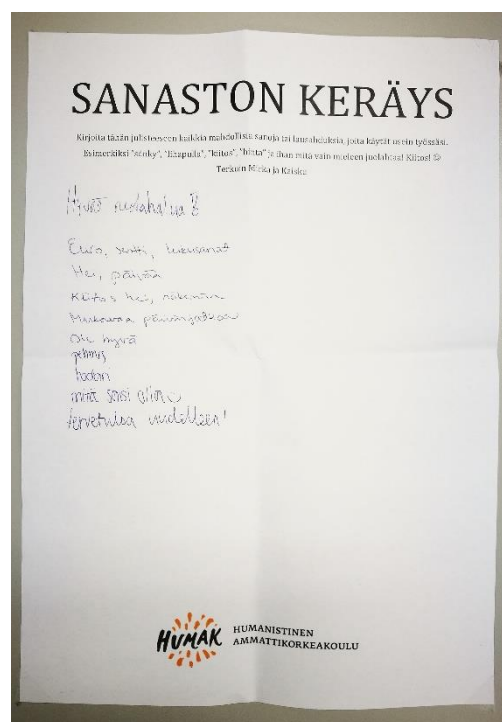 SANASTON KERÄYS
Kirjoita tähän julisteeseen kaikkia mahdollisia sanoja tai lausahduksia, joita käytät usein työssäsi.
Esimerkiksi "sänky", "lihapulla", "kiitos", "hinta" ja ihan mitä vain mieleen juolahtaa! Kiitos! ☺
Terkuin Mirka ja Kaisku
Hyvää ruokahalua!
Euro, sentti, lukusanat
Hei, päivää
Kiitos hei, näkemiin
Mukavaa päivänjatkoa
Ole hyvä
pehmis
hodari
mitä saisi olla
tervetuloa uudelleen!
HUMAK
HUMANISTINEN
AMMATTIKORKEAKOULU